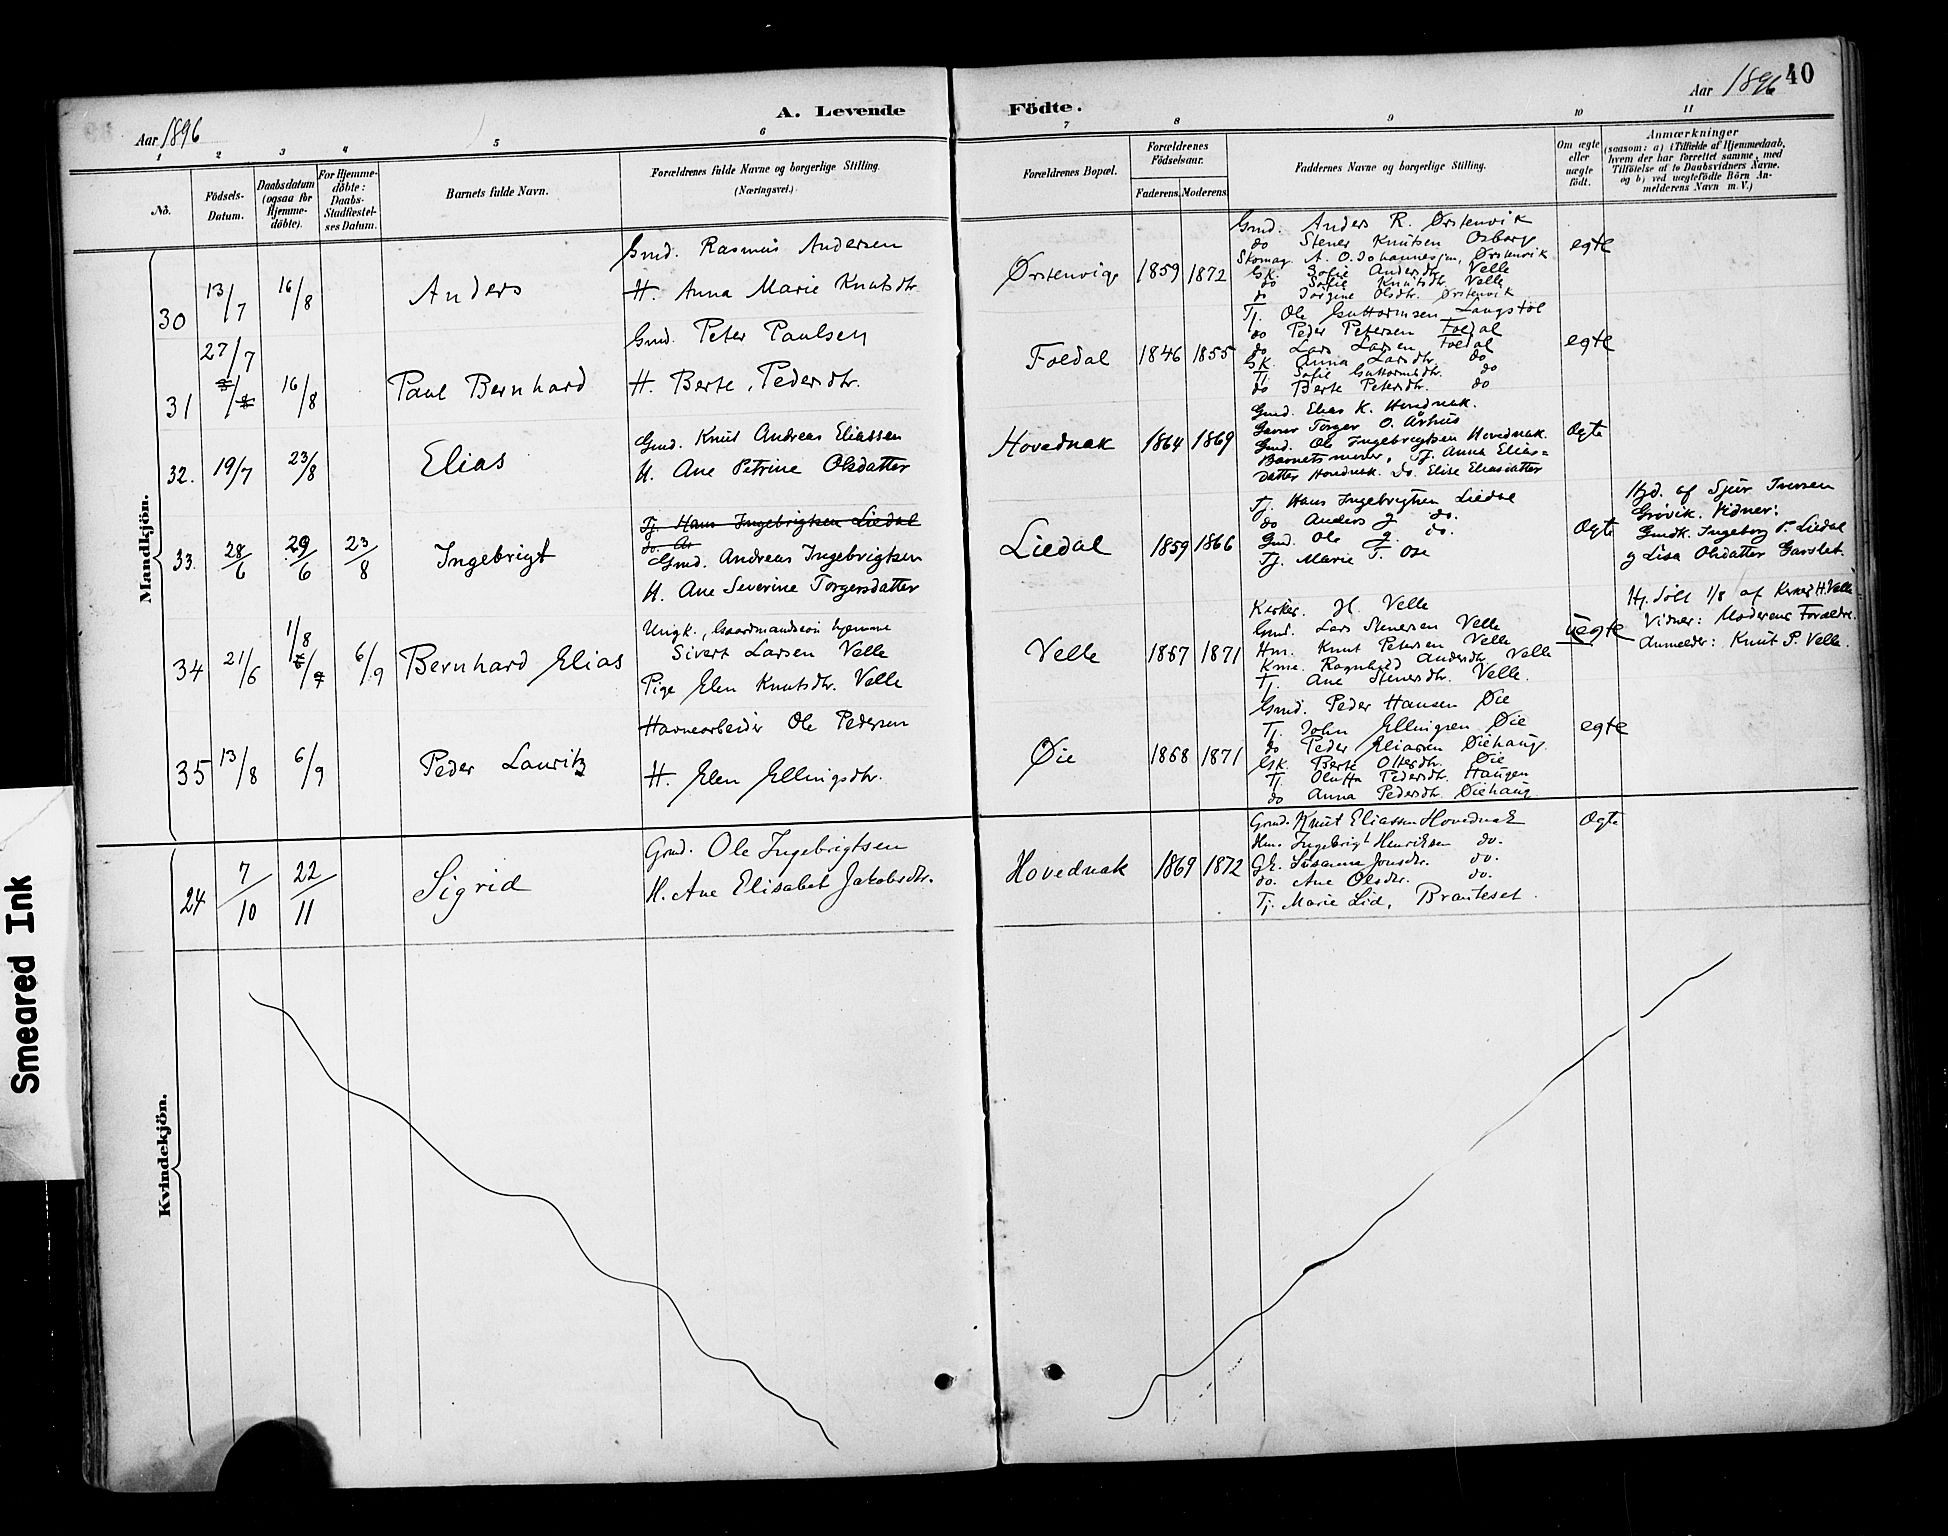 Aar 1896
A. Levende Födte.
Aar 1896 40
1 2 3 4 5 6 7 8 9 10 11
No.
Födsels-Datum.
Daabsdatum (ogsaa for Hjemme-döbte).
For Hjemme-döbte: Daabs-Stadfæstel-ses Datum.
Barnets fulde Navn.
Forældrenes fulde Navne og borgerlige Stilling.
(Næringsvei.)
Forældrenes Bopæl.
Forældrenes Födselsaar.
Faderens. Moderens.
Faddernes Navne og borgerlige Stilling.
Om ægte eller uægte födt.
Anmærkninger
(saasom: a) i Tilfælde af Hjemmedaab,
hvem der har forrettet samme, med
Tilföielse af to Daabsvidners Navne,
og b) ved uægtefödte Börn An-
melderens Navn m. V.)
Mandkjön.
30
13/7
16/8
Anders
Gmd. Rasmus Andersen
H. Anna Marie Knutsdtr.
Ørstenvig
1859 1872
Gmd. Anders R. Ørstenvik
do Stener Knutsen Osborg
Skomag. A. O. Johannessen, Ørstenvik
Gk. Sofie Andersdtr. Velle
do Sofie Knutsdtr. Velle
do Jørgine Olsdtr. Ørstenvik
egte
31
27/7
16/8
Paul Bernhard
Gmd. Peter Paulsen
H. Berte Pedersdtr.
Foldal
1846 1855
Tj. Ole Guttormsen Langstøl
do Peder Petersen Foldal
do Lars Larsen Foldal
Gk. Anna Larsdtr. do
Tj. Sofie Guttormsdtr. do
do Berte Petersdtr. do
egte
32.
19/7
23/8
Elias
Gmd. Knut Andreas Eliassen
H. Ane Petrine Olsdatter
Hovednak
1864 1869
Gmd. Elias K. Hovednak.
Garver Torger O. Århus
Gmd. Ole Ingebrigtsen Hovednak.
Barnets moder, Tj. Anna Elias=
datter Hovednak. Do. Elise Eliasdatter
Ægte
33.
28/6
29/6
23/8
Ingebrigt
Tj. Hans Ingebrigtsen Liedal
do. An
Gmd. Andreas Ingebrigtsen
H. Ane Severine Torgersdatter
Liedal
1859 1866
Tj. Hans Ingebrigtsen Liedal
do Anders J. do.
Gmd. Ole J. do.
Tj. Marie T. Ose
Ægte
Hjd. af Sjur Iversen
Grøvik. Vidner:
Gmdk. Ingeborg P. Liedal
g Lisa Olsdatter Gavslet.
34
21/6
1/8
6/9
Bernhard Elias
Ungk., Gaardmandsøn hjemme
Sivert Larsen Velle
Pige Elen Knutsdtr. Velle
Velle
1867 1871
Kirkes. H. Velle
Gmd. Lars Stenersen Velle
Hm. Knut Petersen Velle
Kme. Ragnhild Andersdtr Velle
Tj. Ane Stenersdtr. Velle.
uegte
Hj. døbt 1/8 af Kirkes. H. Velle
Vidner: Moderens Forældre.
Anmelder: Knut P. Velle.
35
13/8
6/9
Peder Lauritz
Havnearbeider Ole Pedersen
H. Elen Ellingsdtr.
Øie
1868 1871
Gmd. Peder Hansen Øie
Tj. John Ellingsen Øie
do Peder Eliassen Øiehaug.
Gk. Berte Olsdtr. Øie
Tj. Oluffa Pedersdtr. Haugen
do Anna Pedersdtr. Øiehaug
egte
Kvindekjön.
24
7/10
22/11
Sigrid
Grmd. Ole Ingebrigtsen
H. Ane Elisabet Jakobsdtr.
Hovednak
1869 1872
Grmd. Knut Eliassen Hovednak
Hm. Ingebrigt Henriksen do.
Gk. Susanna Jonsdtr. do.
do. Ane Olsdtr. do.
Tj. Marie Lid, Brauteset.
Ægte
Smeared Ink